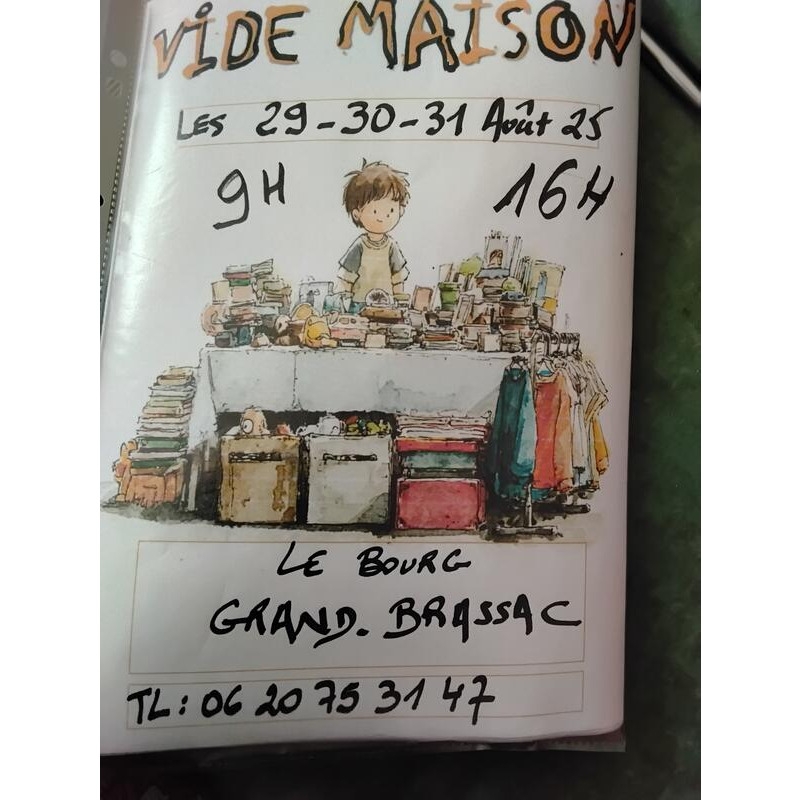 VIDE MAISON
LES 29-30-31 Août 25
9H 16H
LE BOURG
GRAND. BRASSAC
TL: 06 20 75 31 47